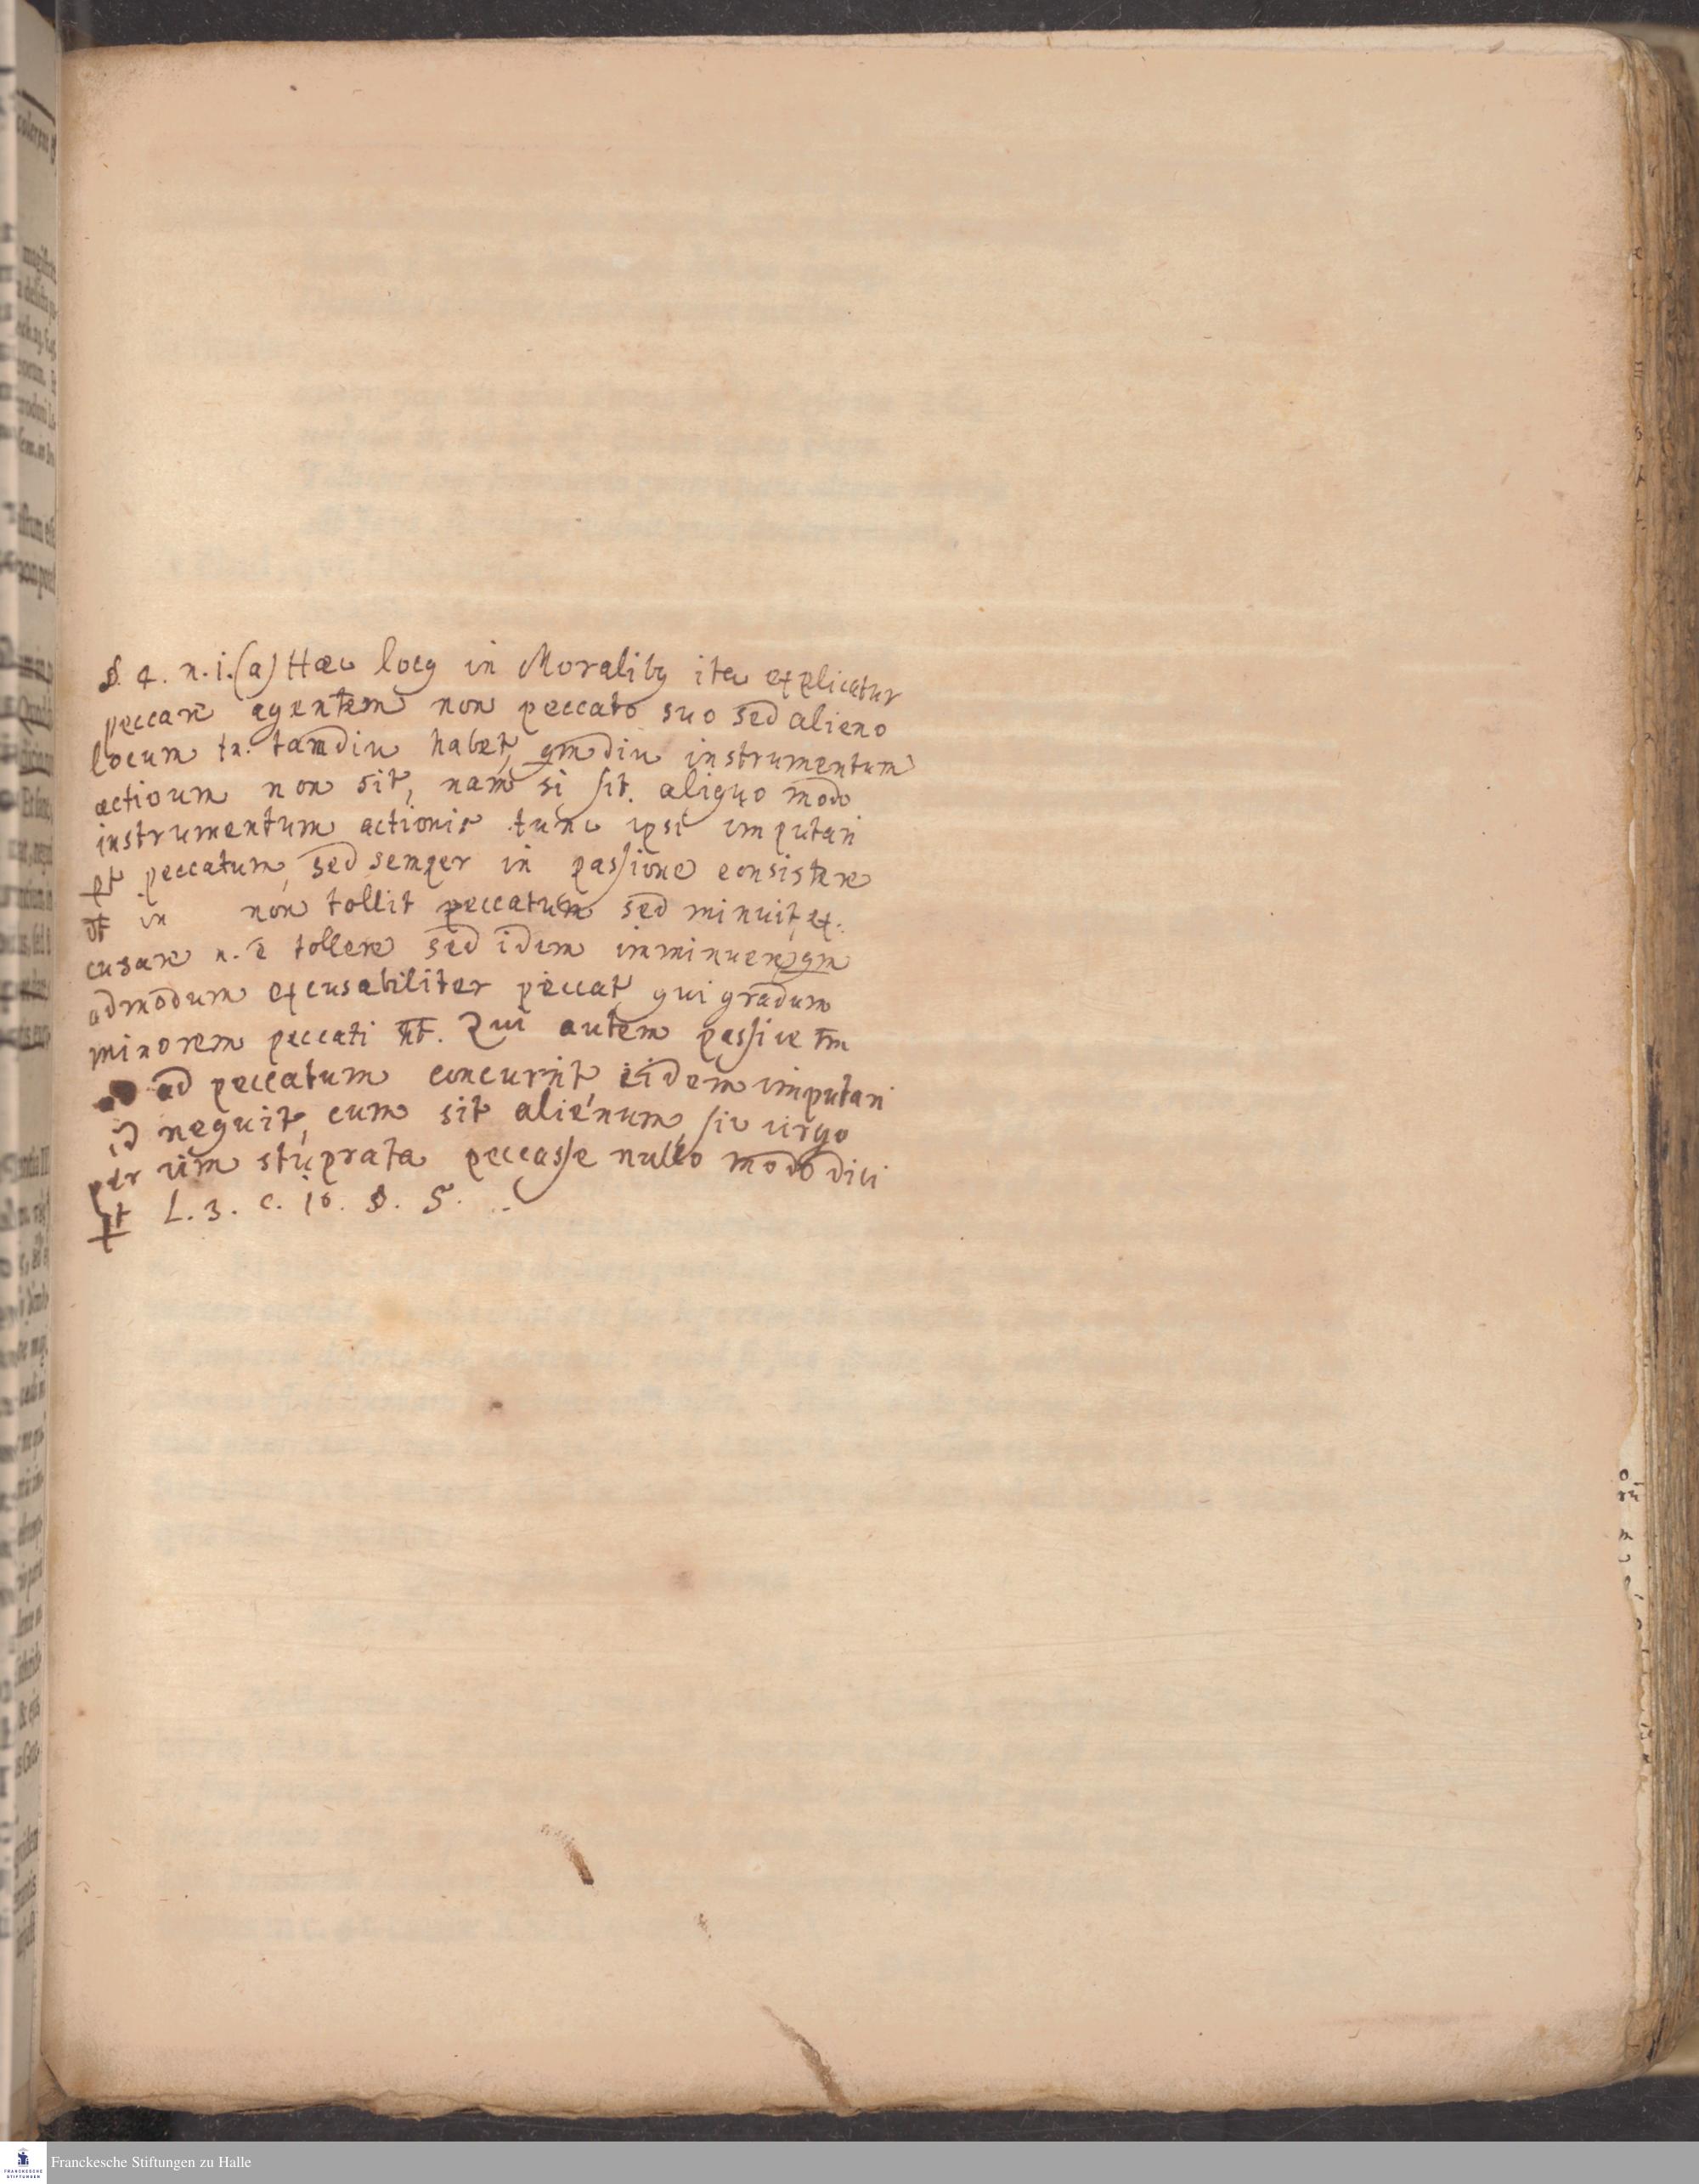 §. 4. n. i. (a) Hæc locꝯ in Moralibꝯ ita explicatur
peccare agentem non peccato suo sed alieno
locum tn. tamdiu habet, qmdiu instrumentum
actioum non sit, nam si sit. aliquo modo
instrumentum actionis tunc ipsi imputari
pt peccatum, sed semper in passione consistere
ut in non tollit peccatum sed minuit, ex.
cusare n. ē tollere sed idem imminuere, qm
admodum excusabiliter peccat, qui gradum
minorem peccati ht. Qui autem passive tm
ad peccatum concurrit eidem imputari
id nequit, cum sit alienum, sic virgo
per vim stuprata peccasse nullo modo dici
pt L. 3. c. 10. §. 5.
Franckesche Stiftungen zu Halle